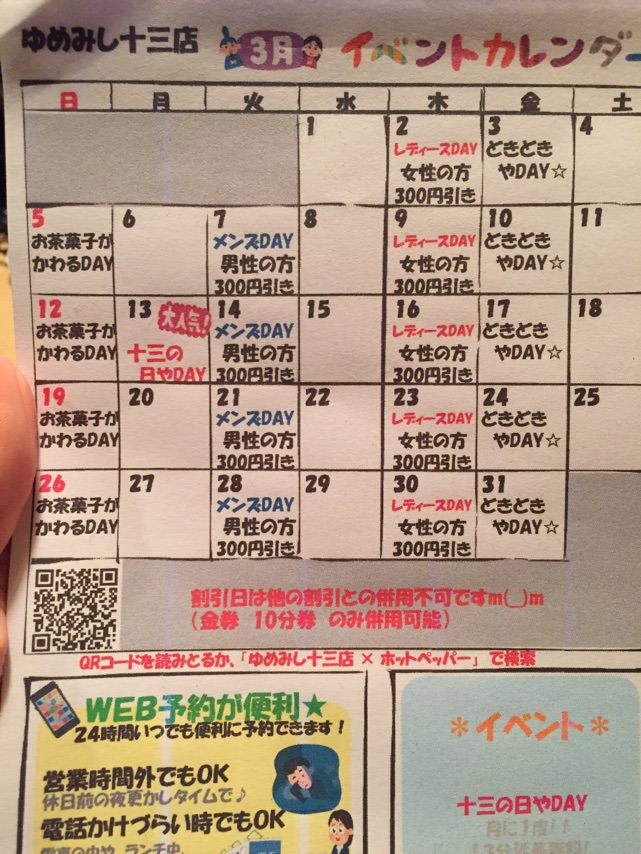 ゆめみし十三店 3月 イベントカレンダー
日 月 火 水 木 金 土
1 2 3 4
レディースDAY どきどき
女性の方 やDAY☆
300円引き
5 6 7 8 9 10 11
お茶菓子が メンズDAY レディースDAY どきどき
かわるDAY 男性の方 女性の方 やDAY☆
300円引き 300円引き
12 13 大人気! 14 15 16 17 18
お茶菓子が 十三の メンズDAY レディースDAY どきどき
かわるDAY 日やDAY 男性の方 女性の方 やDAY☆
300円引き 300円引き
19 20 21 22 23 24 25
お茶菓子が メンズDAY レディースDAY どきどき
かわるDAY 男性の方 女性の方 やDAY☆
300円引き 300円引き
26 27 28 29 30 31
お茶菓子が メンズDAY レディースDAY どきどき
かわるDAY 男性の方 女性の方 やDAY☆
300円引き 300円引き
割引日は他の割引との併用不可ですm(_)m
(金券 10分券 のみ併用可能)
QRコードを読みとるか、「ゆめみし十三店 × ホットペッパー」で検索
WEB予約が便利★
24時間いつでも便利に予約できます!
営業時間外でもOK
休日前の夜更かしタイムで♪
電話かけづらい時でもOK
電車の中や、ランチ中、
*イベント*
十三の日やDAY
月に1度!!